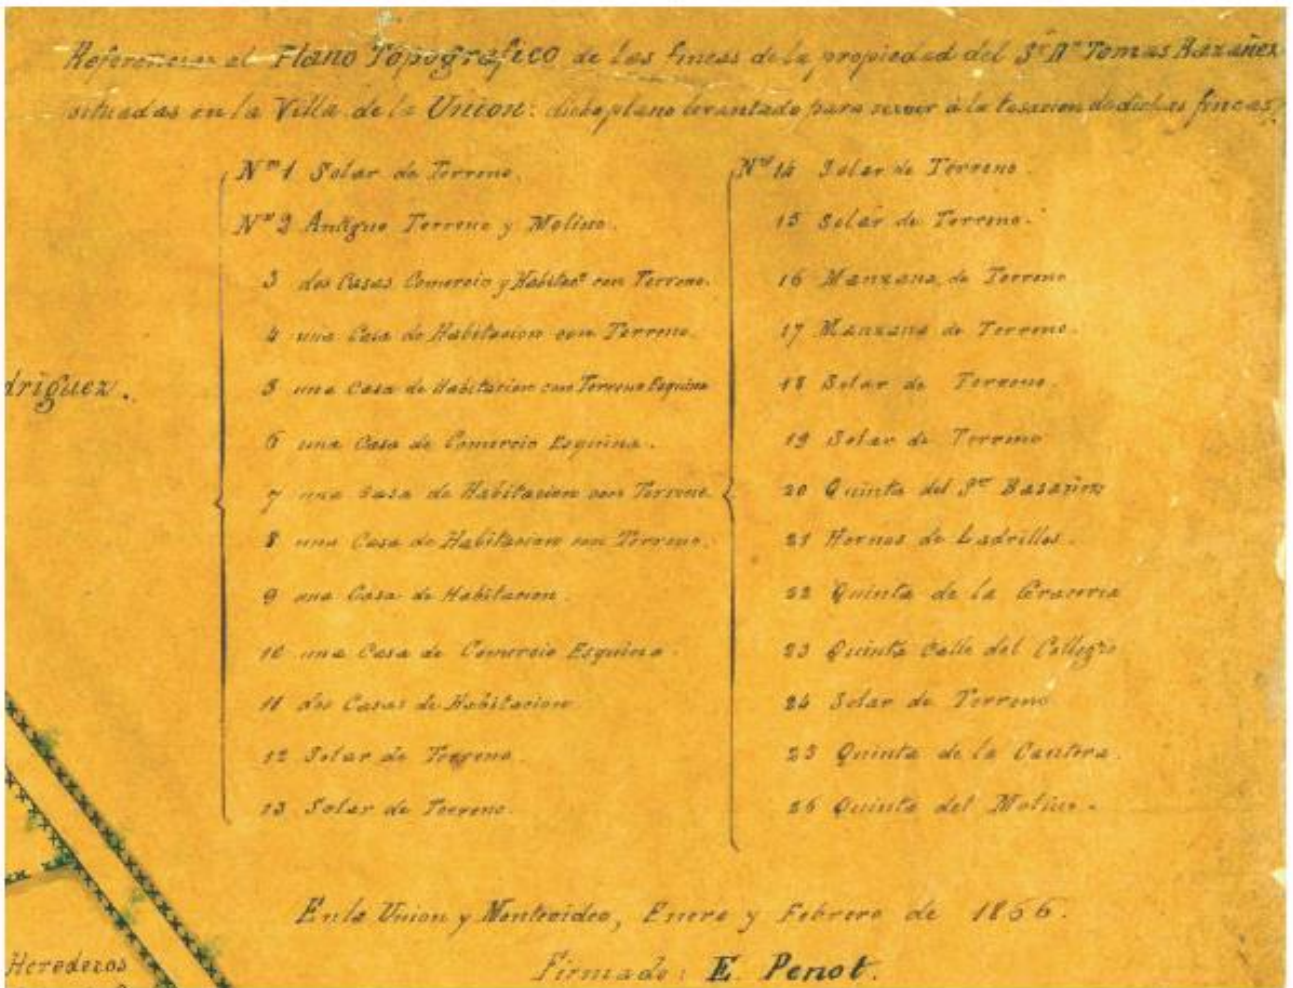 Referencias al Plano Topografico de las fincas de la propiedad del Sr Dn Tomas Bazañez
situadas en la Villa de la Union: dicho plano levantado para servir à la tasacion de dichas fincas.
No 1 Solar de Terreno.
No 2 Antiguo Terreno y Molino.
3 dos Casas Comercio y Habitacn con Terreno.
4 una Casa de Habitacion con Terreno.
5 una Casa de Habitacion con Terreno Esquina
6 una Casa de Comercio Esquina.
7 una Casa de Habitacion con Terreno.
8 una Casa de Habitacion con Terreno.
9 una Casa de Habitacion.
10 una Casa de Comercio Esquina.
11 dos Casas de Habitacion
12 Solar de Terreno.
13 Solar de Terreno.
No 14 Solar de Terreno.
15 Solar de Terreno.
16 Manzana de Terreno
17 Manzana de Terreno.
18 Solar de Terreno.
19 Solar de Terreno
20 Quinta del Sr Basañez
21 Hornos de Ladrillos.
22 Quinta de la
23 Quinta Calle del Collegio
24 Solar de Terreno
25 Quinta de la Cantera.
26 Quinta del Molino.
driguez.
En la Union y Montevideo, Enero y Febrero de 1866.
Herederos
Firmado: E. Penot.